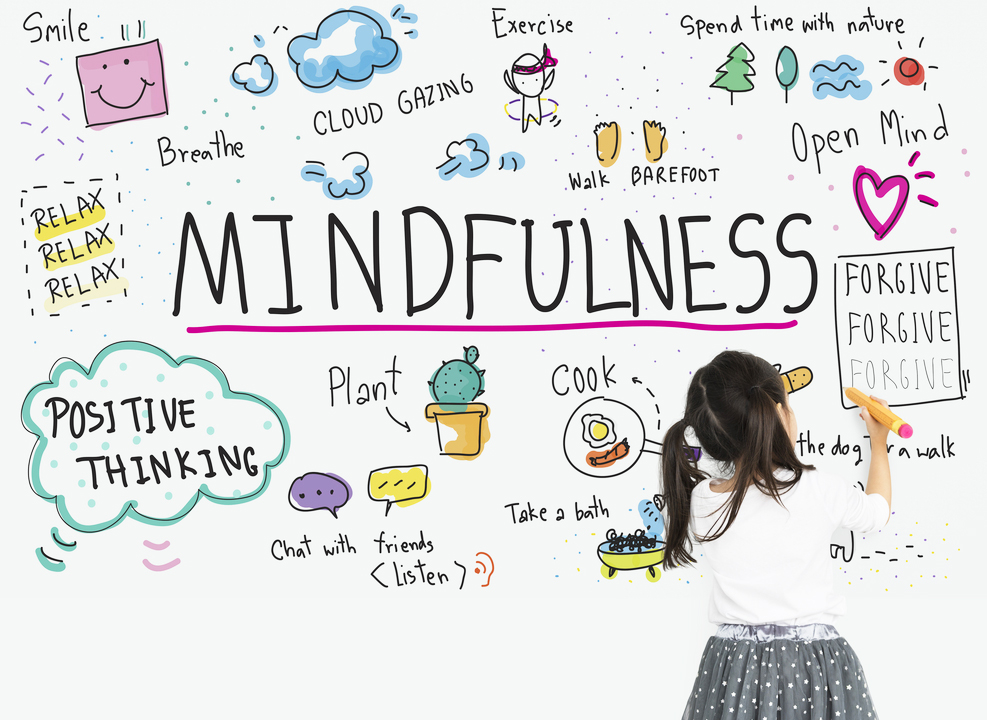 Smile
Exercise
Spend time with nature
CLOUD GAZING
Breathe
Open Mind
Walk BAREFOOT
RELAX
RELAX
RELAX
MINDFULNESS
FORGIVE
FORGIVE
FORGIVE
POSITIVE
THINKING
Plant
Cook
the dog a walk
Take a bath
Chat with friends
<Listen>